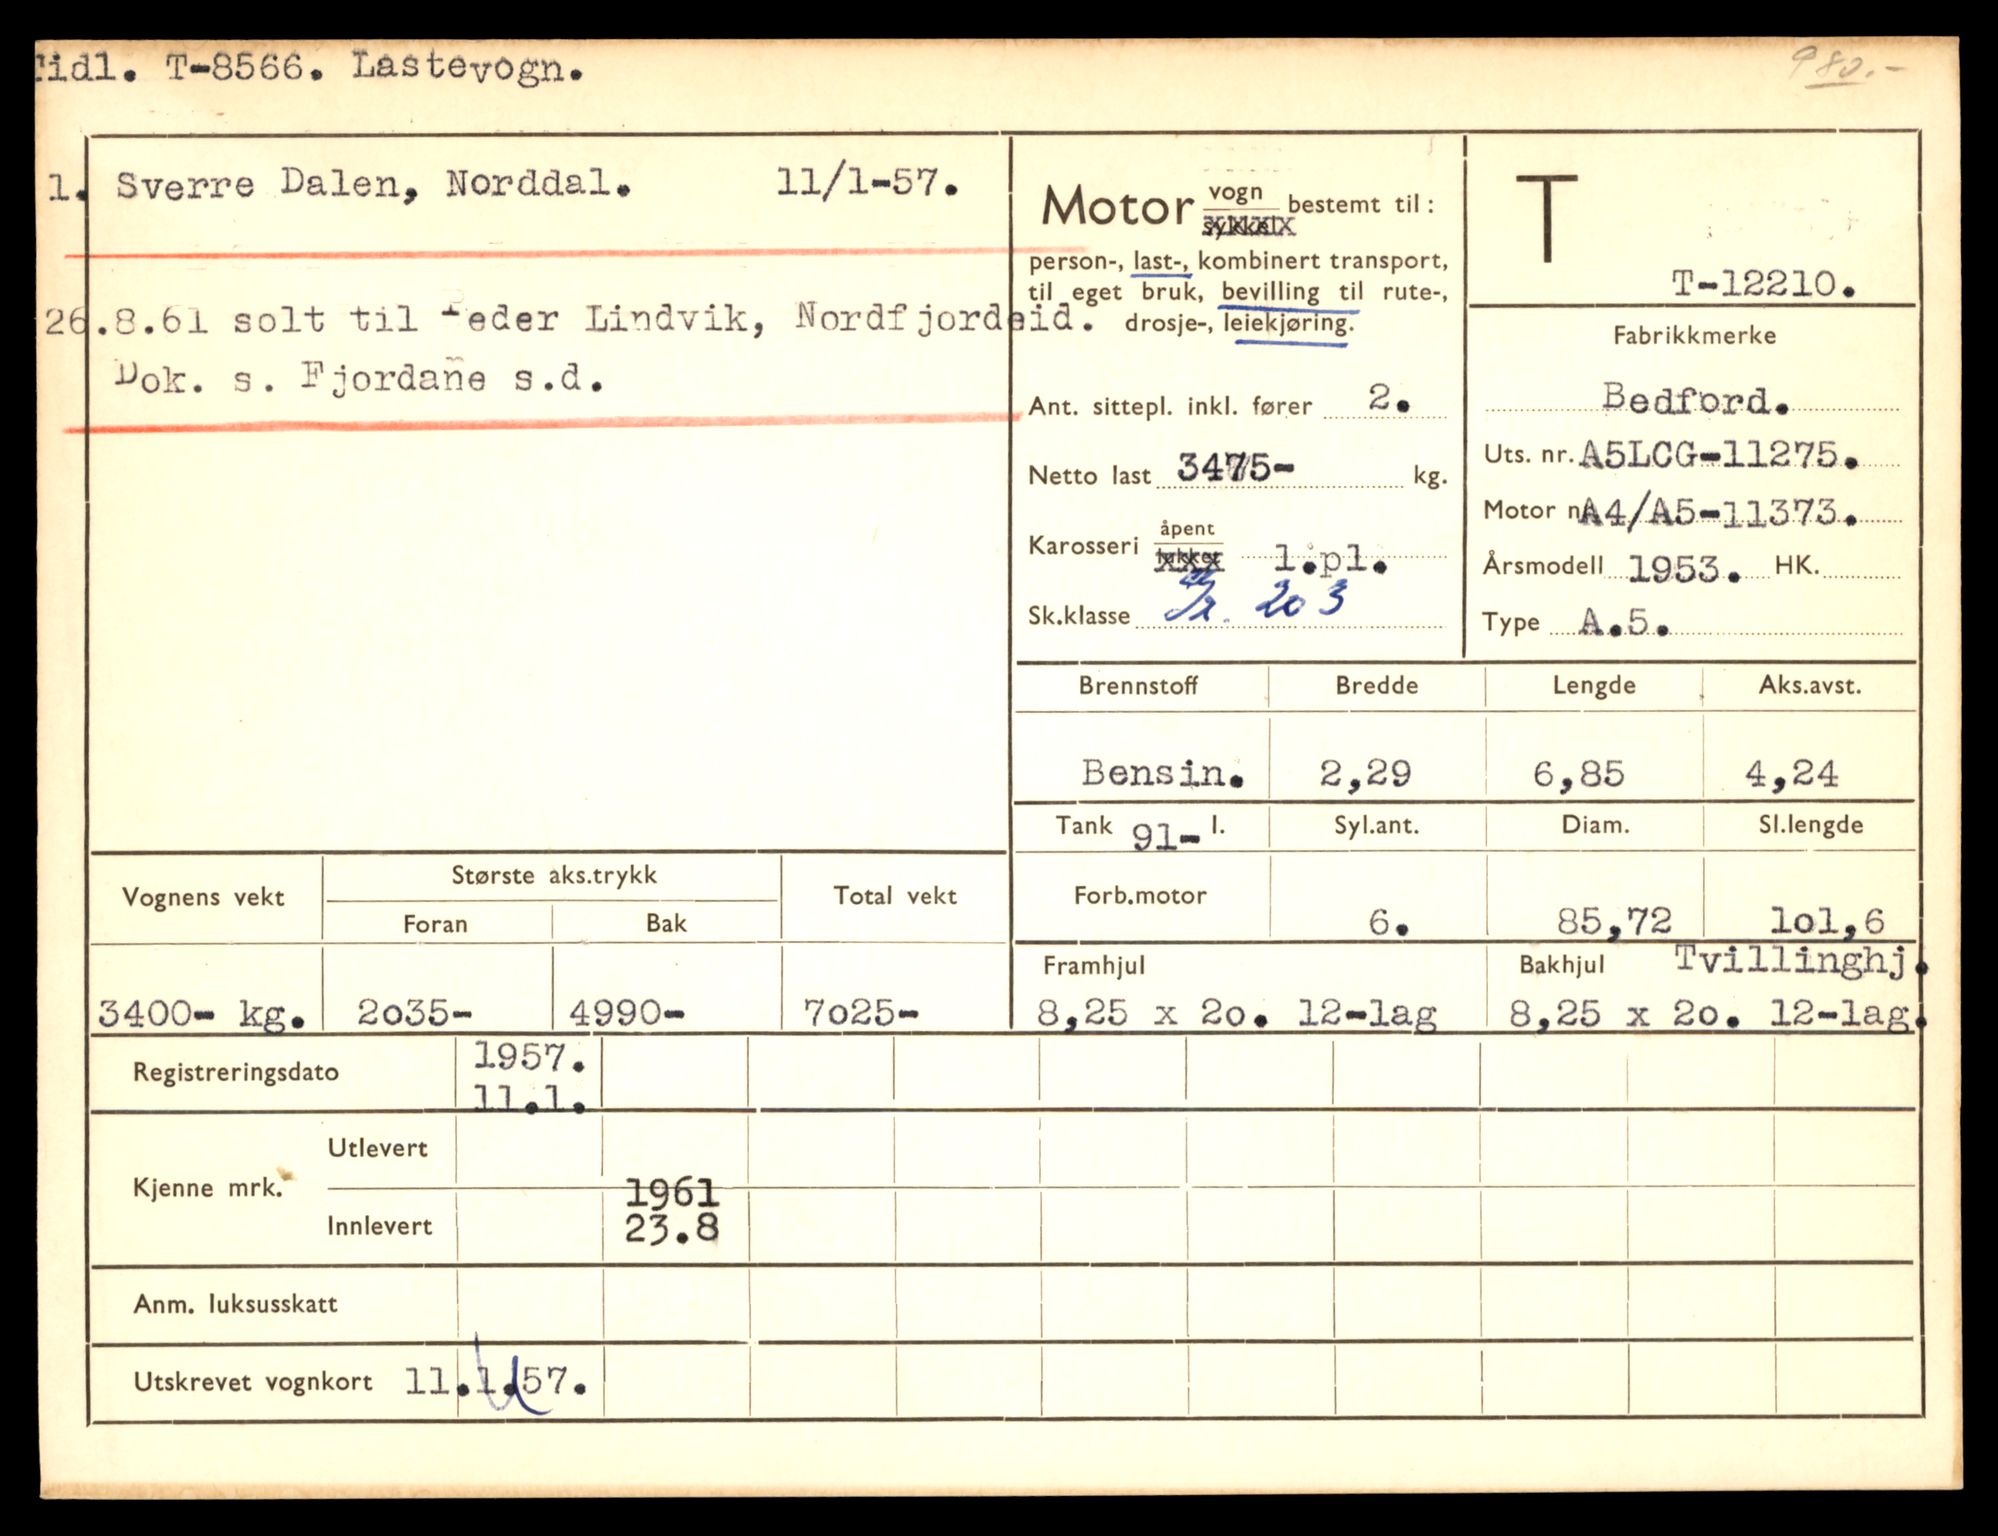 Tidl. T-8566. Lastevogn.
980.-
1. Sverre Dalen, Norddal. 11/1-57.
26.8.61 solt til Peder Lindvik, Nordfjordeid.
Dok. s. Fjordane s.d.
Motor vogn bestemt til:
sykkel
person-, last-, kombinert transport,
til eget bruk, bevilling til rute-,
drosje-, leiekjøring.
Ant. sittepl. inkl. fører 2.
Netto last 3475- kg.
Karosseri åpent
lukket 1.pl.
Sk.klasse 203
T
T-12210.
Fabrikkmerke
Bedford.
Uts. nr. A5LCG-11275.
Motor nr. A4/A5-11373.
Årsmodell 1953. HK.
Type A.5.
Brennstoff Bredde Lengde Aks.avst.
Bensin. 2,29 6,85 4,24
Tank 91- l. Syl.ant. Diam. Sl.lengde
Forb.motor 6. 85,72 1o1,6
Vognens vekt Største aks.trykk Total vekt
Foran Bak
3400- kg. 2o35- 4990- 7o25-
Framhjul Bakhjul Tvillinghj.
8,25 x 2o. 12-lag 8,25 x 2o. 12-lag.
Registreringsdato 1957.
11.1.
Kjenne mrk. Utlevert
Innlevert 1961
23.8
Anm. luksusskatt
Utskrevet vognkort 11.1.57.